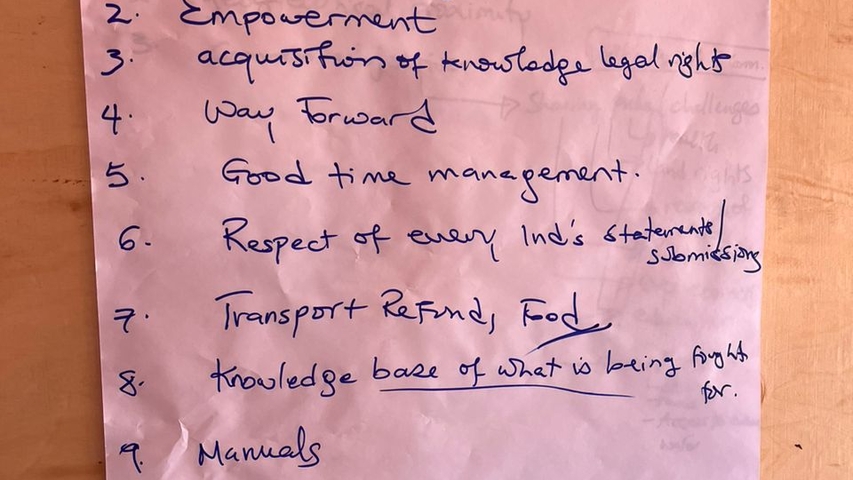 2. Empowerment
3. acquisition of knowledge legal rights
4. Way Forward
5. Good time management.
6. Respect of every Ind's statements/
submissions
7. Transport Refund, Food
8. Knowledge base of what is being fought
for.
9. Manuals